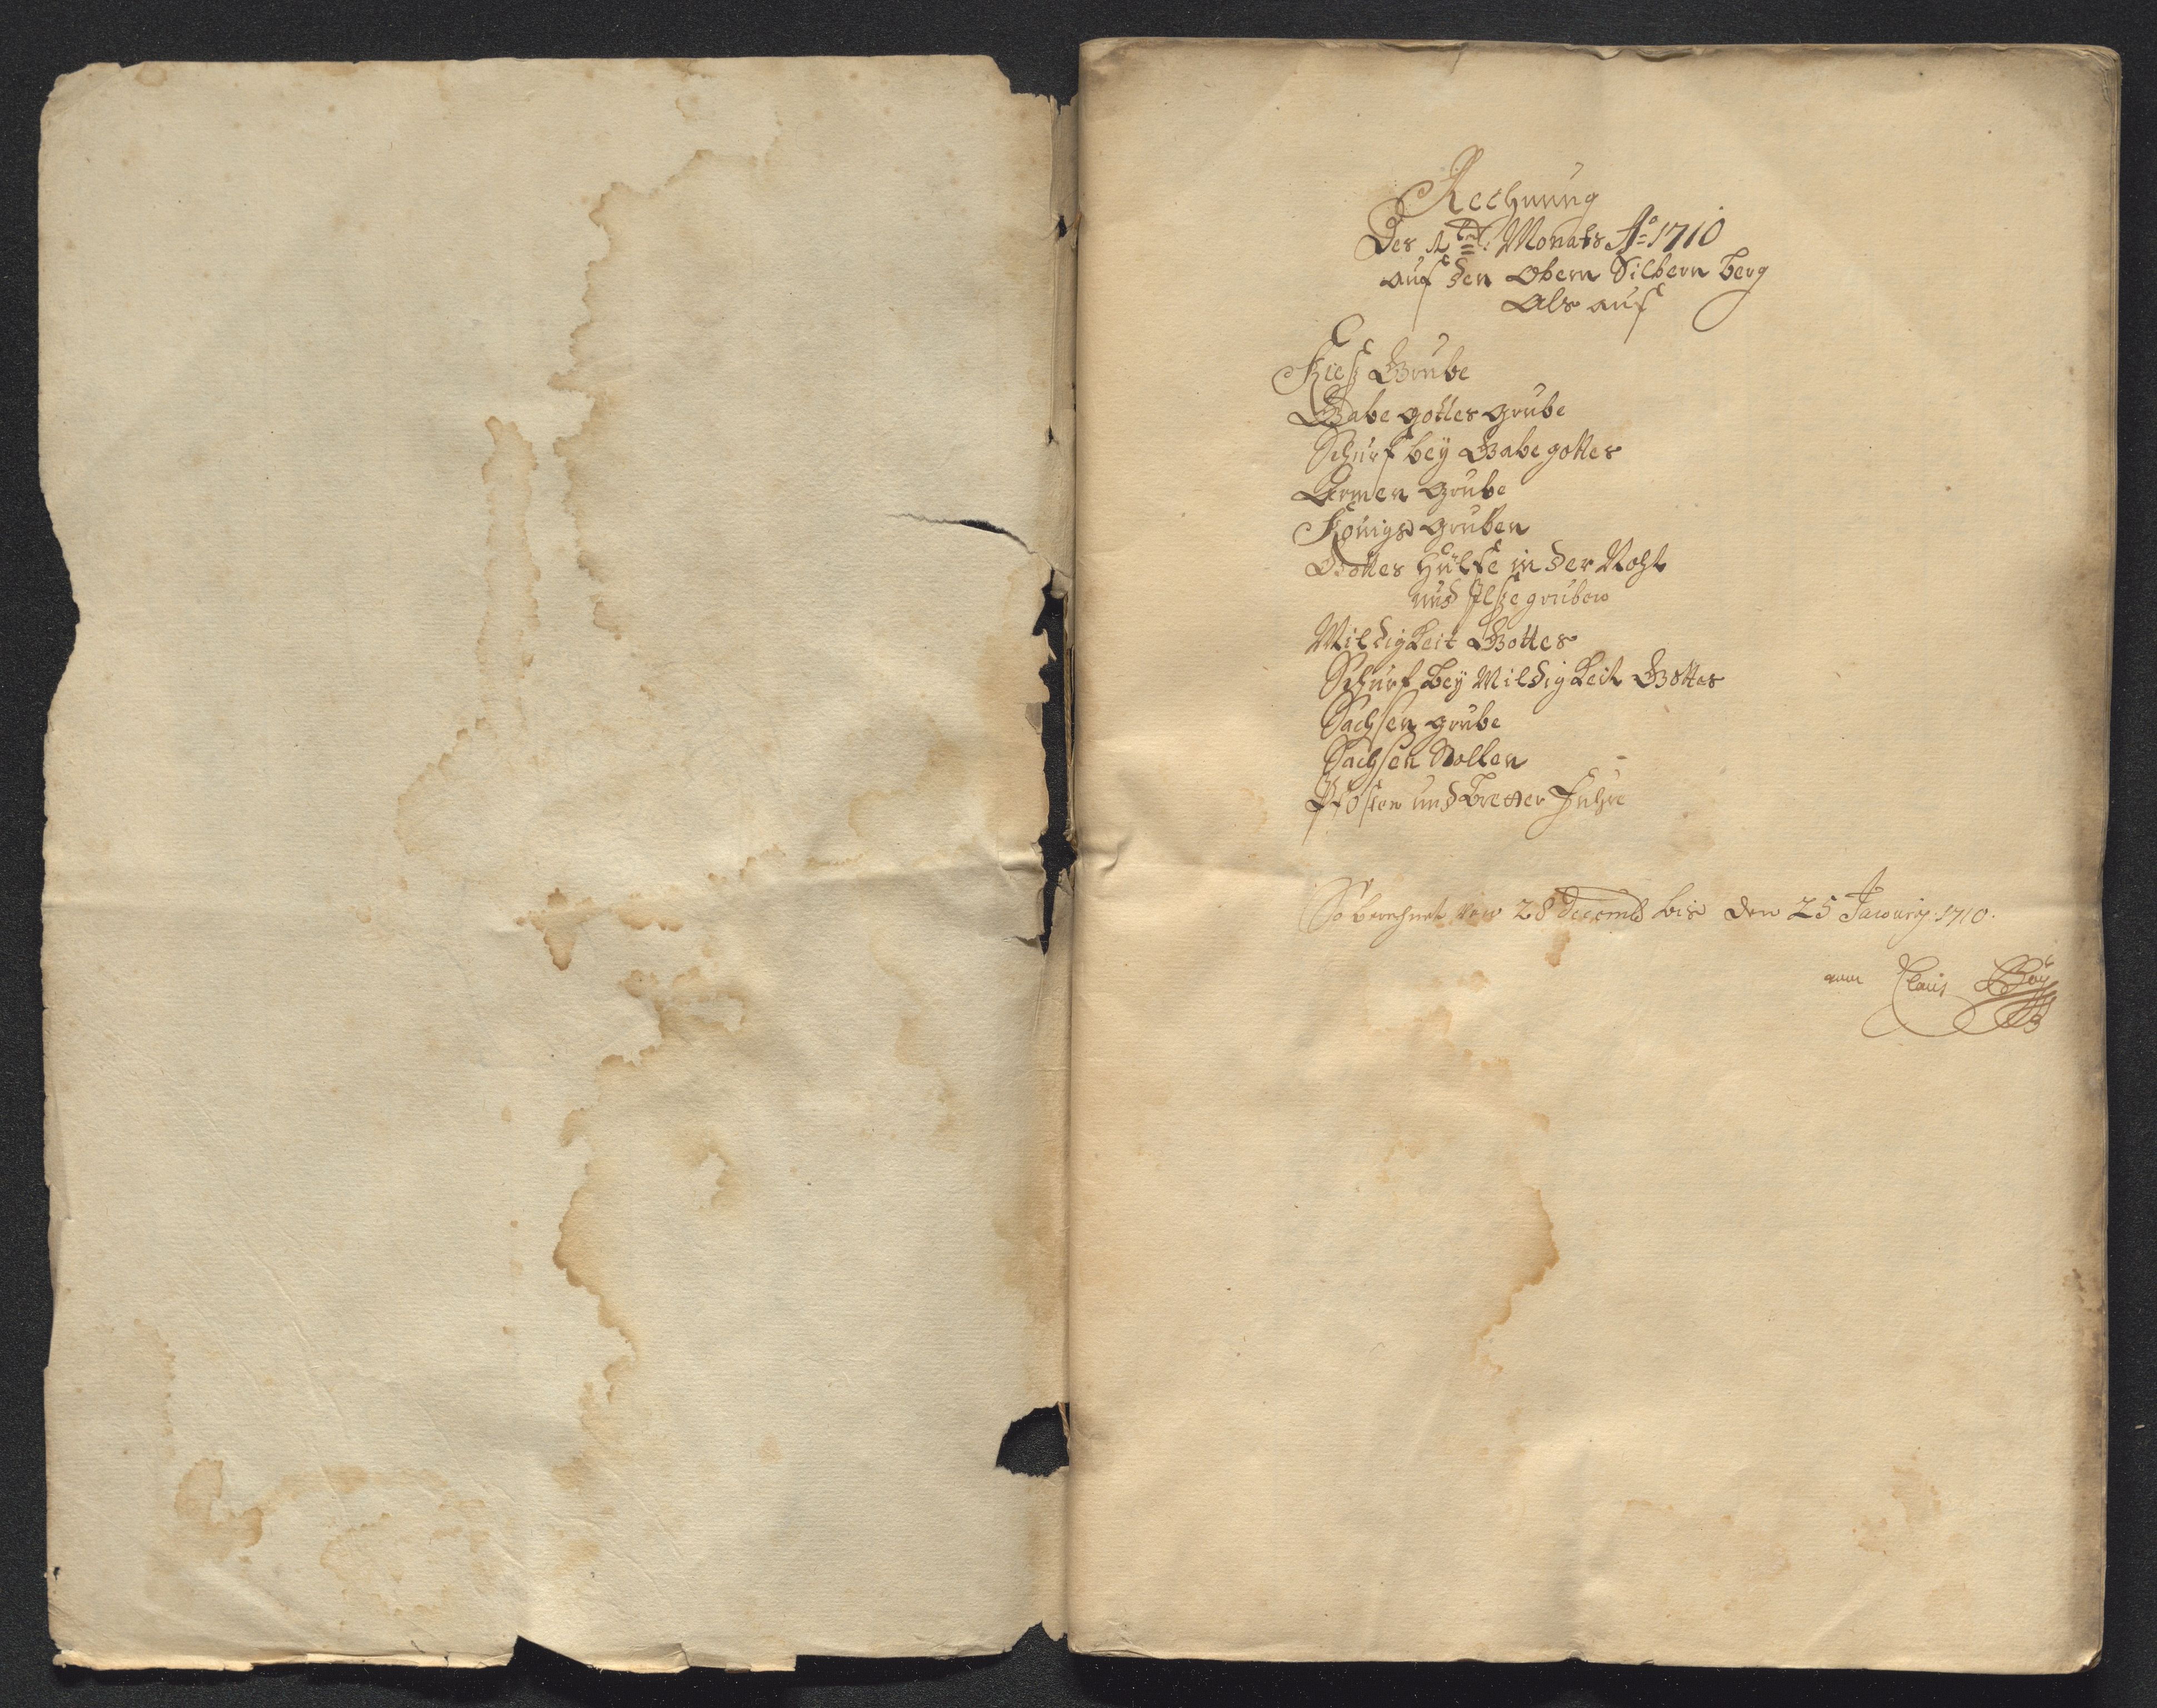 Rechnung
Des 1ten Monats Ao 1710
auf den Obern Silbern berg
Als auf
Kieß Grube
Gabe gottes grube
Schurf bey Gabe gottes
Armen grube
Königs gruben
Gottes Hülfe in der Noht
und gruben
Mildigkeit Gottes
Schurf bey Mildigkeit Gottes
Sachsen grube
Sachsen Stollen
Pfosten und Bretter Fuhre
So berechnet von 28 Decemb bis den 25 January 1710.
Claus